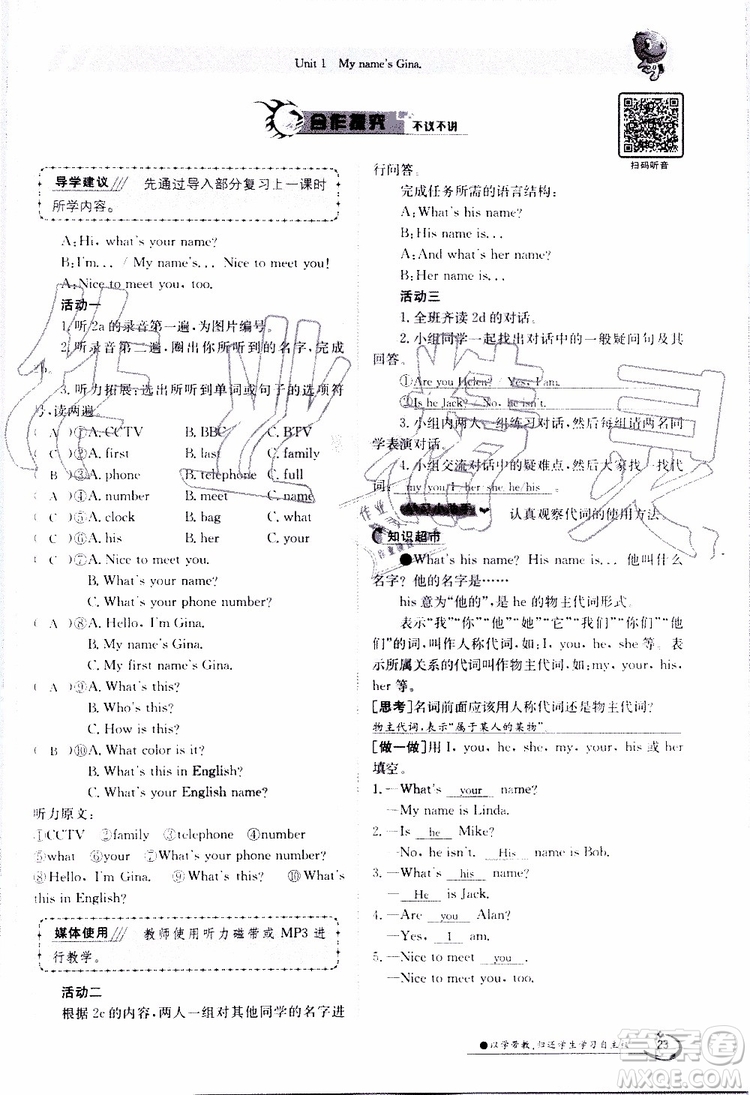 Unit 1 My name's Gina.
合作探究 不议不讲
扫码听音
导学建议 先通过导入部分复习上一课时
所学内容。
A:Hi, what's your name?
B:I'm... / My name's... Nice to meet you!
A:Nice to meet you, too.
活动一
1.听2a的录音第一遍,为图片编号。
2.听录音第二遍,圈出你所听到的名字,完成
2b。
3.听力拓展:选出所听到的单词或句子的选项符
号,读两遍。
( A )①A. CCTV B. BBC C. BTV
( C )②A. first B. last C. family
( B )③A. phone B. telephone C. full
( A )④A. number B. meet C. name
C. what
A. clock B. bag
A. his B. her C. your
( C )⑦A. Nice to meet you.
B. What's your name?
C. What's your phone number?
( A )⑧A. Hello, I'm Gina.
B. My name's Gina.
C. My first name's Gina.
( A )⑨A. What's this?
B. Who's this?
C. How is this?
( B )⑩A. What color is it?
B. What's this in English?
C. What's your English name?
听力原文:
①CCTV ②family ③telephone ④number
⑤what ⑥your ⑦What's your phone number?
⑧Hello, I'm Gina. ⑨What's this? ⑩What's
this in English?
媒体使用 教师使用听力磁带或 MP3 进
行教学。
活动二
根据 2c 的内容,两人一组对其他同学的名字进
行问答。
完成任务所需的语言结构:
A:What's his name?
B:His name is...
A:And what's her name?
B:Her name is...
活动三
1.全班齐读 2d 的对话。
2.小组同学一起找出对话中的一般疑问句及其
回答。
①Are you Helen? / Yes, I am.
②Is he Jack? / No, he isn't.
3.小组内两人一组练习对话,然后每组请两名同
学表演对话。
4.小组交流对话中的疑难点,然后大家找一找代
词: my/you/I/her/she/he/his 。
认真观察代词的使用方法。
知识超市
●What's his name? His name is... 他叫什么
名字? 他的名字是……
his 意为“他的”,是 he 的物主代词形式。
表示“我”“你”“他”“她”“它”“我们”“你们”“他
们”的词,叫作人称代词,如:I, you, he, she等。表
示所属关系的代词叫作物主代词,如:my, your, his,
her 等。
[思考]名词前面应该用人称代词还是物主代词?
物主代词,表示“属于某人的某物”
[做一做]用 I, you, he, she, my, your, his 或 her
填空。
1. —What's your name?
—My name is Linda.
2. —Is he Mike?
—No, he isn't. His name is Bob.
3. —What's his name?
—He is Jack.
4. —Are you Alan?
—Yes, I am.
5. —Nice to meet you.
—Nice to meet you, too.
●以学带教,归还学生学习自主权
23
答案圈
MXQE.COM
作业精灵